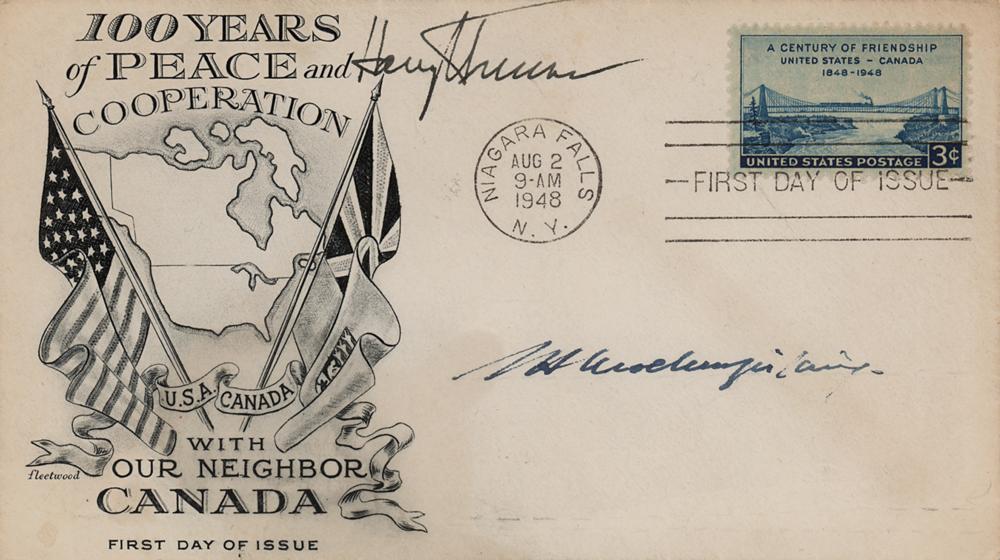 100 YEARS
of PEACE and
COOPERATION
Harry Truman
A CENTURY OF FRIENDSHIP
UNITED STATES - CANADA
1848-1948
UNITED STATES POSTAGE 3¢
NIAGARA FALLS
AUG 2
9-AM
1948
N. Y.
FIRST DAY OF ISSUE
U.S.A. CANADA
WITH
OUR NEIGHBOR
CANADA
fleetwood
FIRST DAY OF ISSUE